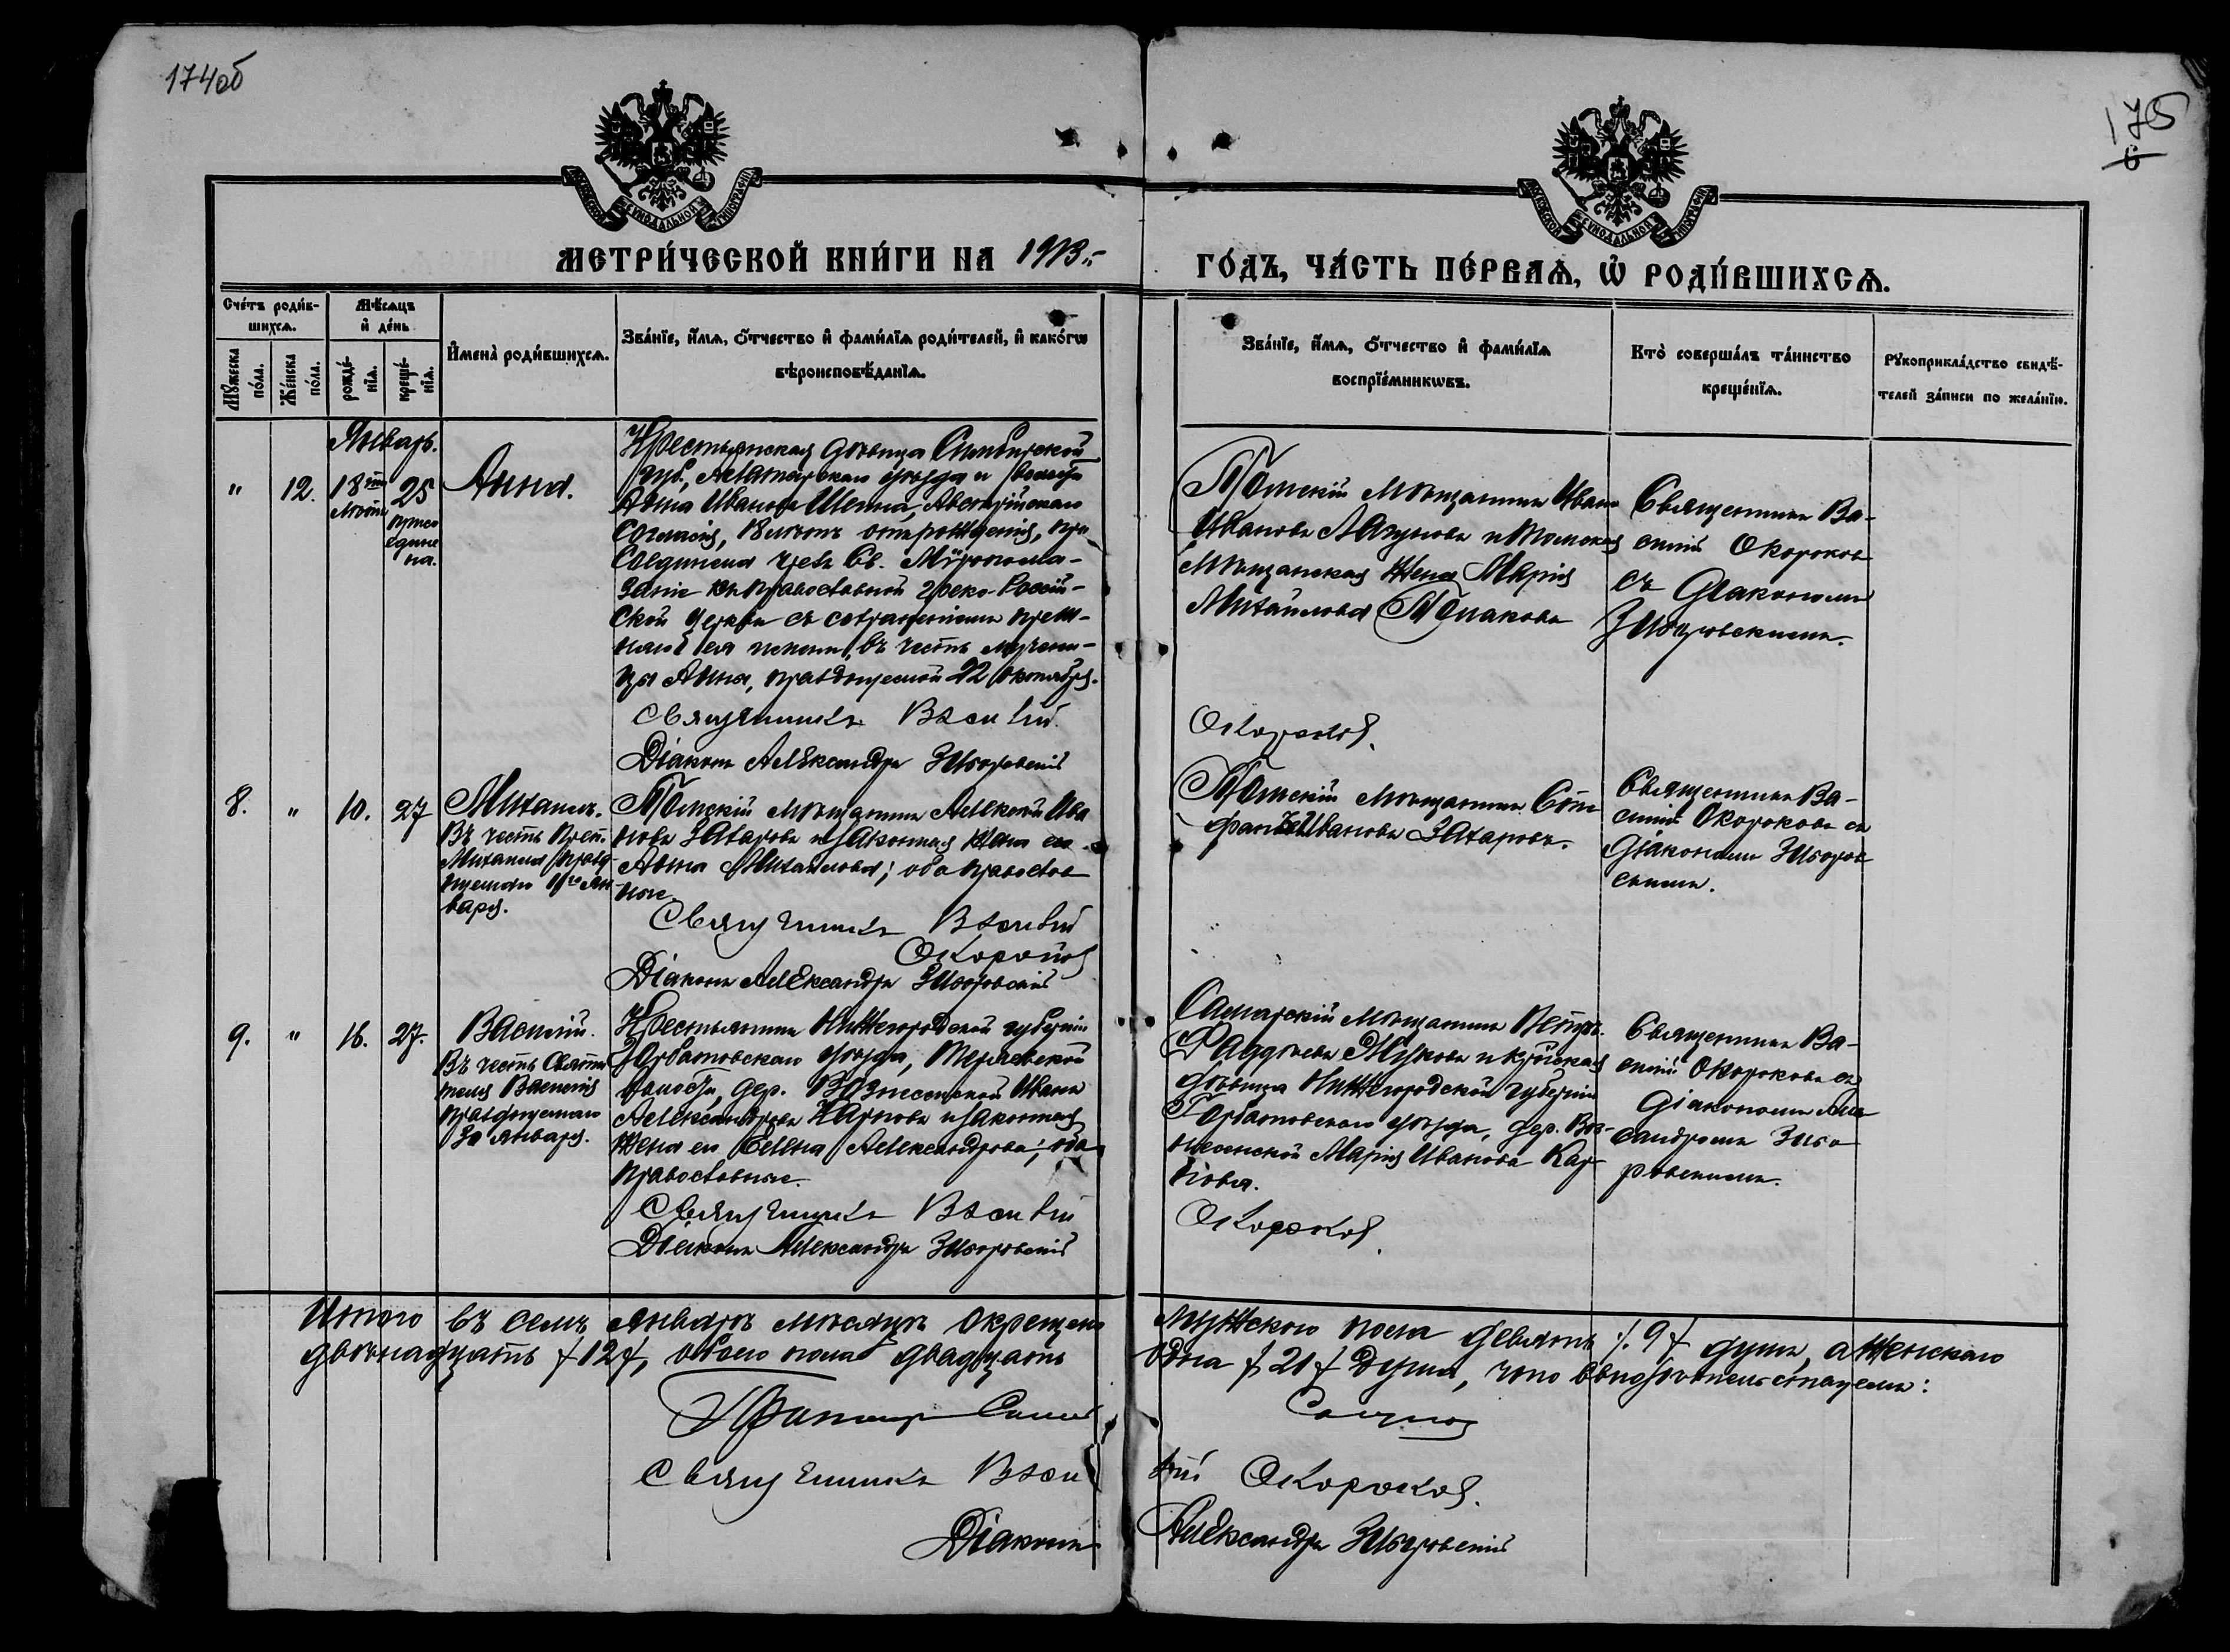 174об
175
МЕТРИ́ЧЕСКОЙ КНИ́ГИ НА 1913.
ГО́ДЪ, ЧА́СТЬ ПЕ́РВАѦ, Ѡ҆ РОДИ́ВШИХСѦ.
Сче́тъ роди́в-
шихсѧ.
Мѣ́сѧцъ
и҆ де́нь
Мꙋ́жеска
по́ла.
Же́нска
по́ла.
рожде́-
нїѧ.
креще́-
нїѧ.
И҆мена̀ роди́вшихсѧ.
Зва́нїе, и҆́мѧ, ѻ҆́тчество и҆ фами́лїѧ роди́телей, и҆ како́гѡ
вѣроисповѣ́данїѧ.
Зва́нїе, и҆́мѧ, ѻ҆́тчество и҆ фами́лїѧ
воспрїе́мникѡвъ.
Кто̀ соверша́лъ та́инство
креще́нїѧ.
Рꙋкоприкла́дство свидѣ́-
телей за́писи по жела́нїю.
Январь.
" 12. 18 лѣтъ 25
присо
едине
на.
Анна.
Крестьянская дѣвица Симбирской
губ., Алатырскаго уѣзда и волости
Анна Иванова, Австрійскаго
согласія, 18 лѣтъ отъ рожденія, при
соединена чрезъ Св. Мѵропома-
заніе къ православной греко-Россій-
ской Церкви съ сохраненіемъ преж-
няго ея имени, въ честь мучени-
цы Анны, празднуемой 22 октября.
Священникъ Василій
Окороковъ.
Діаконъ Александръ
Томскій мѣщанинъ Иванъ
Ивановъ и Томская
мѣщанская жена Марія
Михайлова
Священникъ Ва-
силій Окороковъ
съ діакономъ
8. " 10. 27
Михаилъ.
Въ честь Преп.
Михаила празд-
нуемаго 11го Ян-
варя.
Томскій мѣщанинъ Алексѣй Ива
новъ Захаровъ и законная жена его
Анна Михайлова; оба православ
ные.
Священникъ Василій
Окороковъ
Діаконъ Александръ
Томскій мѣщанинъ
Ивановъ Захаровъ.
Священникъ Ва-
силій Окороковъ съ
діакономъ
9. " 16. 27.
Василій.
Въ честь Святи
теля Василія
празднуемаго
30 января.
Крестьянинъ Нижегородской губерніи
Горбатовскаго уѣзда,
волости, дер. Вознесенской Иванъ
Александровъ Карповъ и законная
жена его Елена Александрова; оба
православные.
Священникъ Василій
Окороковъ.
Діаконъ Александръ
Самарскій мѣщанинъ Петръ
Фаддѣевъ Жуковъ и крест-ская
дѣвица Нижегородской губерніи
Горбатовскаго уѣзда, дер. Воз-
несенской Марія Иванова Кар-
пова.
Священникъ Ва-
силій Окороковъ съ
діакономъ Алек
сандромъ
Итого въ семъ Январѣ мѣсяцѣ окрещено мужского пола девять /.9/ душъ, а женскаго
двѣнадцать /12/, обоего пола двадцать одна /21/ душа, что и свидѣтельствуемъ:
Священникъ Василій Окороковъ.
Діаконъ Александръ